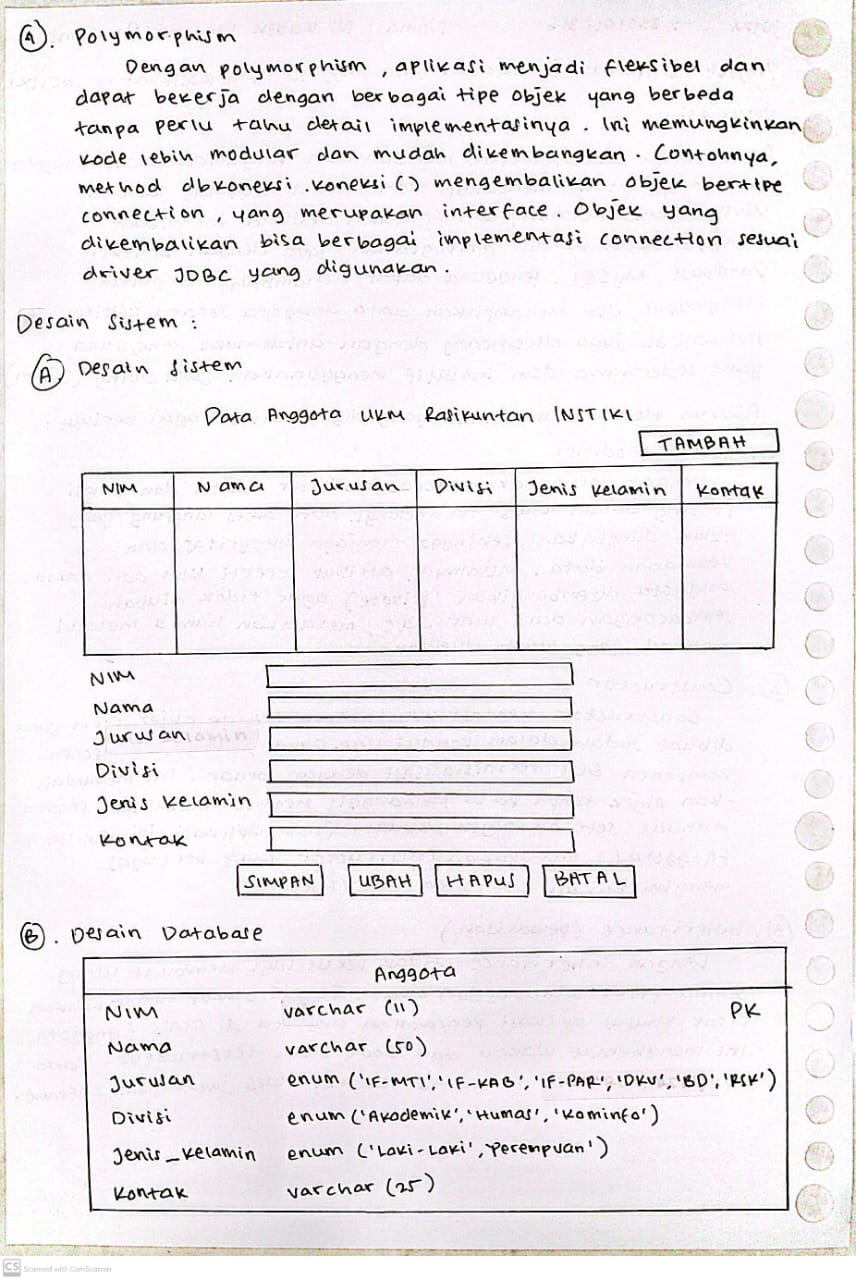 4. Polymorphism
Dengan polymorphism, aplikasi menjadi fleksibel dan
dapat bekerja dengan berbagai tipe objek yang berbeda
tanpa perlu tahu detail implementasinya. Ini memungkinkan
kode lebih modular dan mudah dikembangkan. Contohnya,
method dbkoneksi.koneksi() mengembalikan objek bertipe
connection, yang merupakan interface. Objek yang
dikembalikan bisa berbagai implementasi connection sesuai
driver JDBC yang digunakan.
Desain Sistem :
A. Desain Sistem
Data Anggota UKM Rasikuntan INSTIKI
TAMBAH
NIM Nama Jurusan Divisi Jenis Kelamin Kontak
NIM
Nama
Jurusan
Divisi
Jenis Kelamin
Kontak
SIMPAN UBAH HAPUS BATAL
B. Desain Database
Anggota
NIM varchar (11) PK
Nama varchar (50)
Jurusan enum ('IF-MTI', 'IF-KAB', 'IF-PAR', 'DKV', 'BD', 'RSK')
Divisi enum ('Akademik', 'Humas', 'Kominfo')
Jenis_Kelamin enum ('Laki-Laki', 'Perempuan')
Kontak varchar (25)
CS Scanned with CamScanner